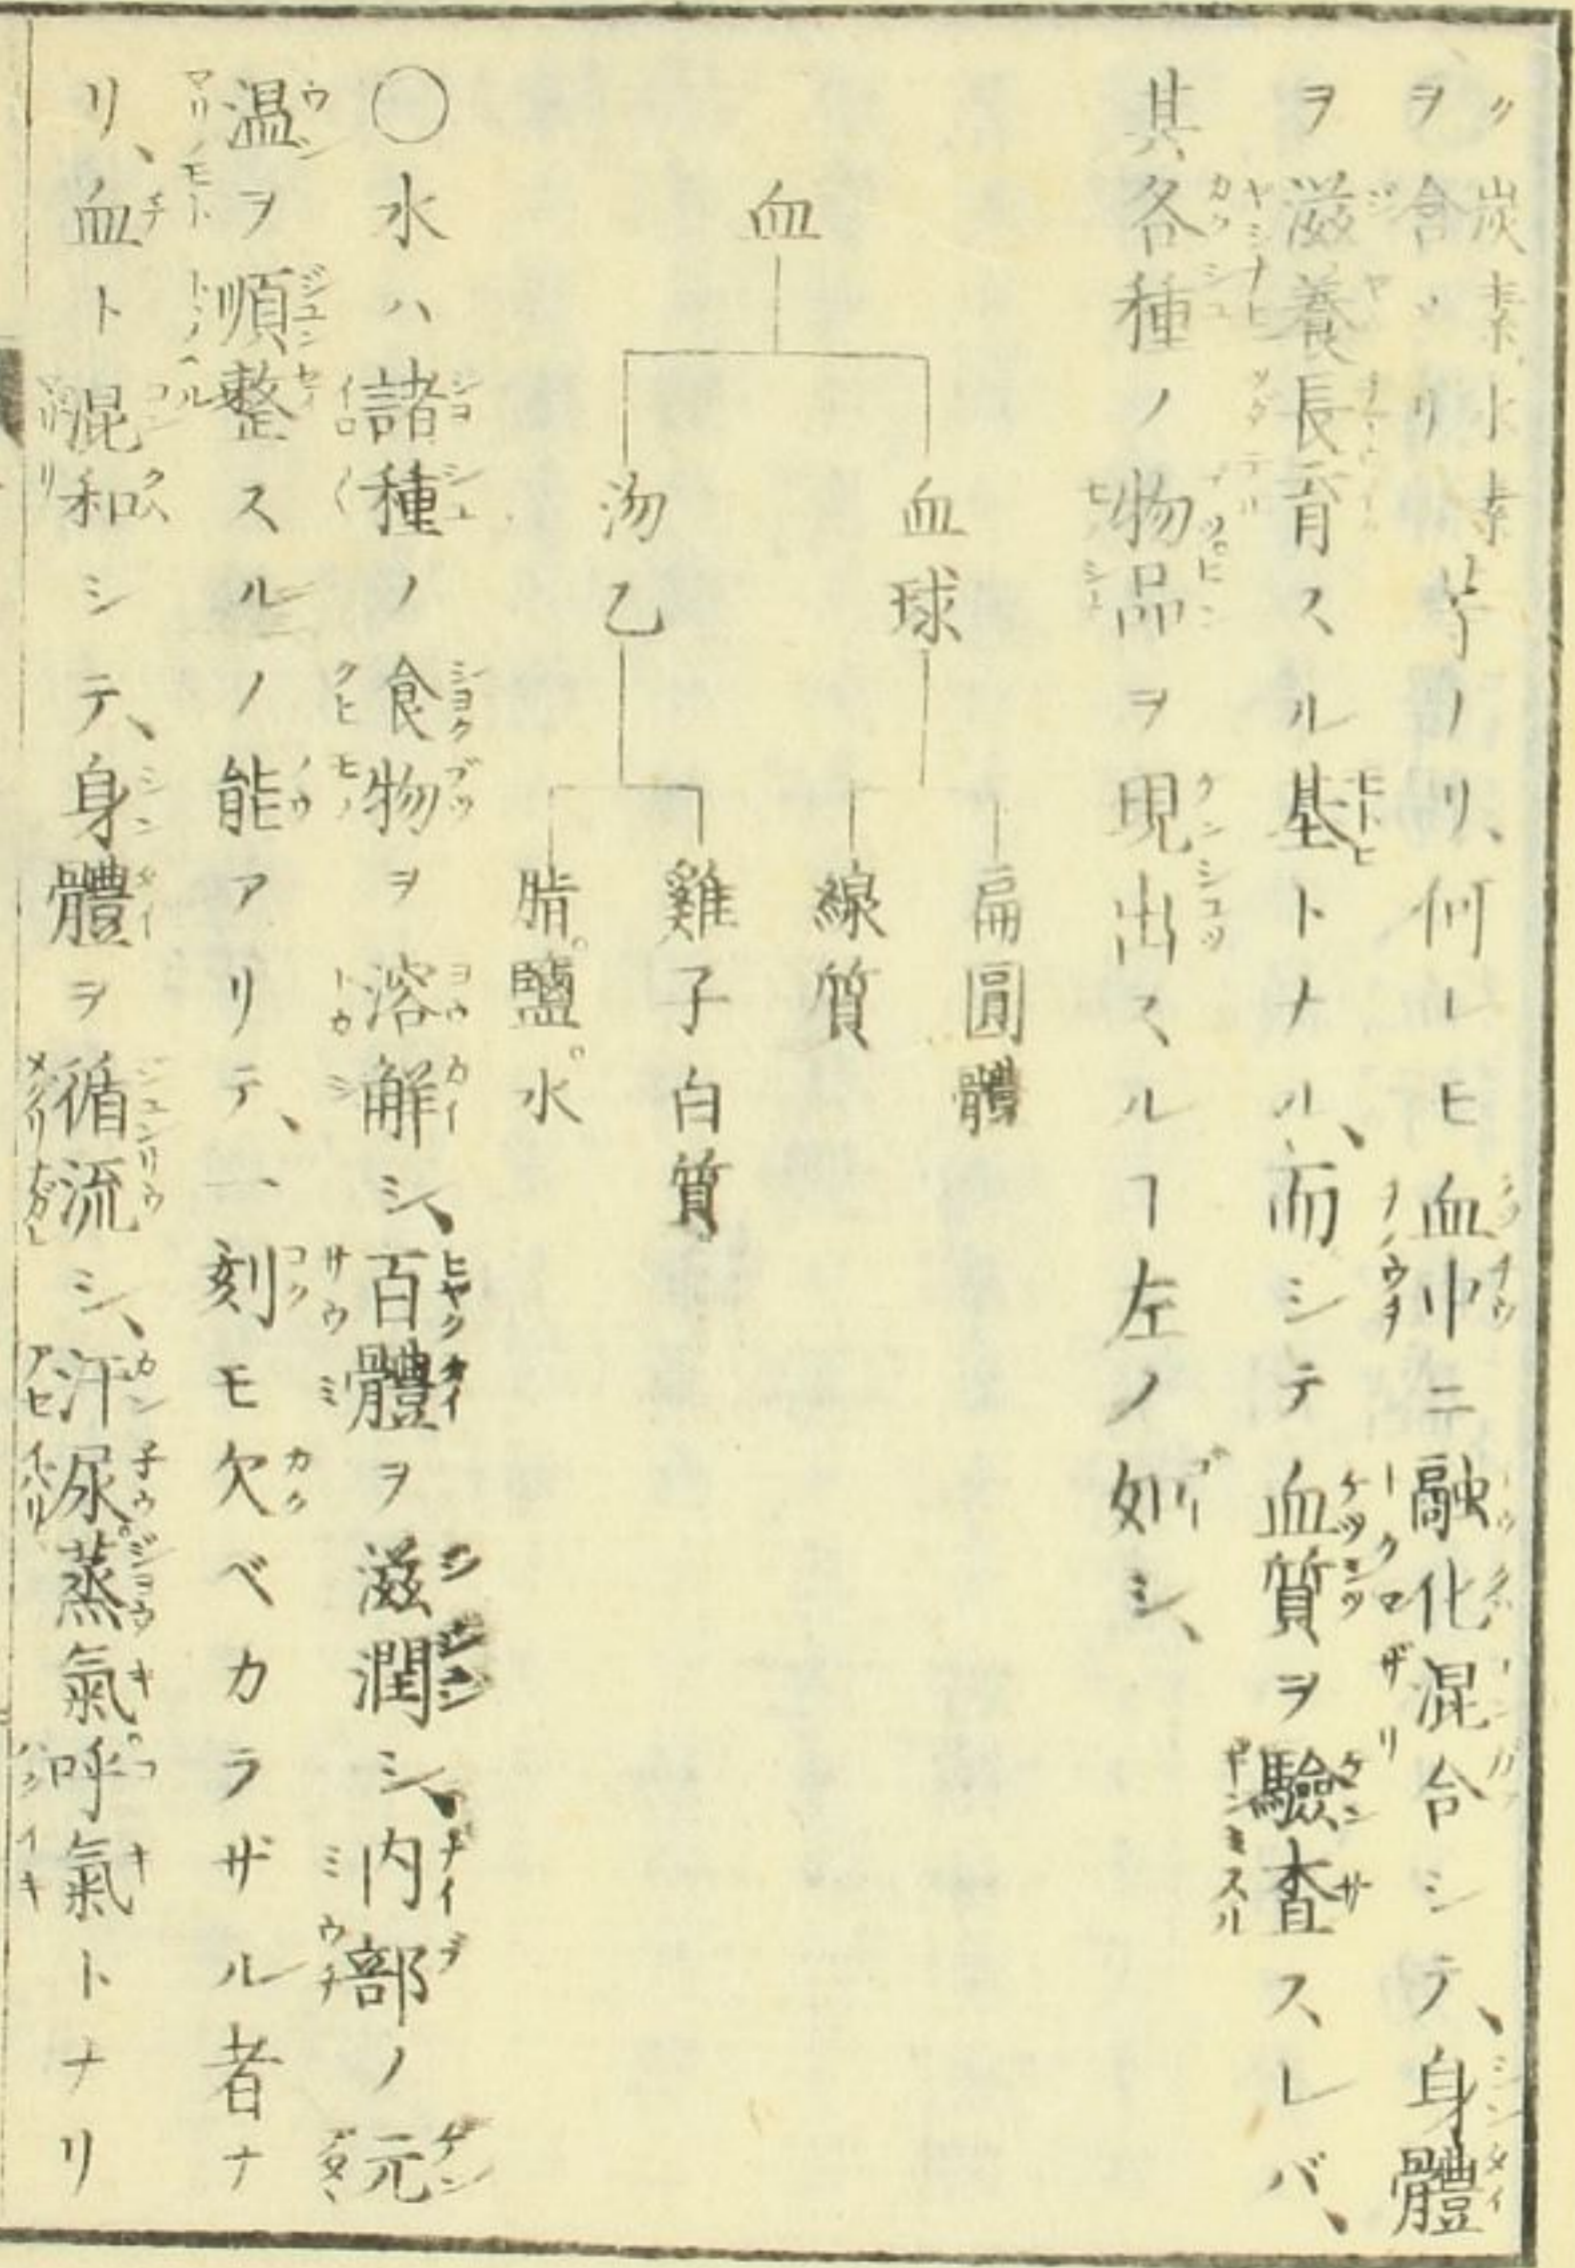 ク炭素水素等ノ
ヲ含ツリリ、何レヒ血中ニ融化混合シテ、身體
ヲ滋養長育スル基トナル、而シテ血質ヲ驗査スレバ、
其各種ノ物品ヲ現出スルヿ左ノ如シ、
血
血球
扁圓體
線質
沕乙
雞子白質
脂。鹽。水
〇水ハ諸種ノ食物ヲ溶解シ、百體ヲ滋潤シ、内部ノ元
温ヲ順整スルノ能アリテ、一刻モ欠ベカラザル者ナ
リ、血ト混和シテ、身體ヲ循流シ、汗尿。蒸氣。呼氣トナリ